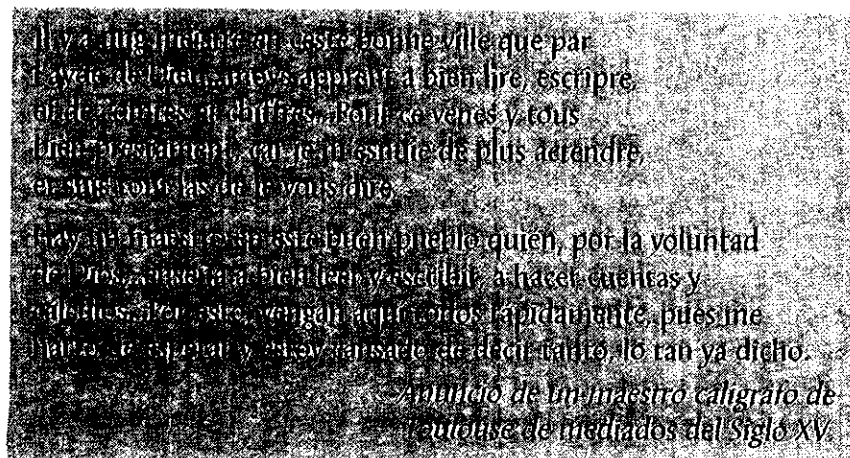 Il y a ung maistre en ceste bonne ville que par
de apprent à bien lire, escripre,
et chiffres. Pour ce venés y tous
bien prestament, car je m'ennuie de plus actendre,
et suis tout las de le vous dire.
Hay un maestro en este buen pueblo quien, por la voluntad
de Dios, enseña a bien leer y escribir, a hacer cuentas y
cálculos. Por esto, vengan aquí todos rápidamente, pues me
de esperar y estoy cansado de decir tanto, lo tan ya dicho.
Anuncio de un maestro calígrafo de
Toulouse de mediados del Siglo XV.